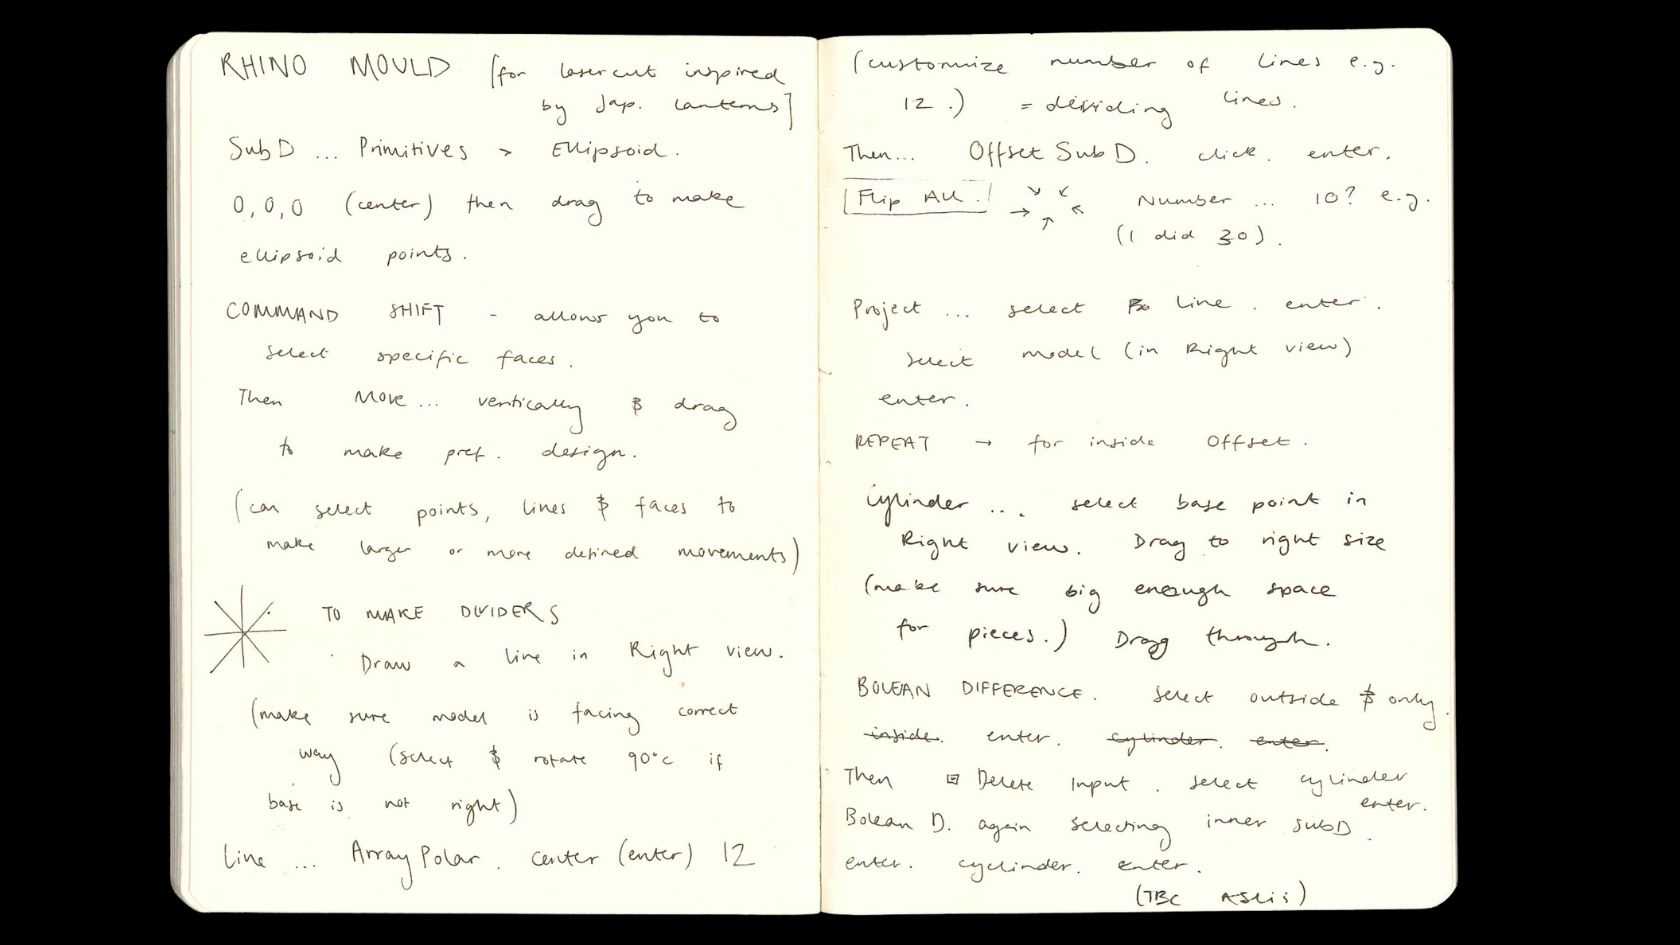 RHINO MOULD [for lasercut inspired
by Jap. lanterns]
SubD ... Primitives > Ellipsoid.
0,0,0 (center) then drag to make
ellipsoid points.
COMMAND SHIFT - allows you to
select specific faces.
Then Move... vertically & drag
to make pref. design.
(can select points, lines & faces to
make larger or more defined movements)
TO MAKE DIVIDERS
Draw a line in Right view.
(make sure model is facing correct
way (select & rotate 90°c if
base is not right)
Line ... ArrayPolar. center (enter) 12
(customize number of lines e.g.
12.) = dividing lines.
Then... Offset SubD. click. enter.
Flip All. Number ... 10? e.g.
(I did 30).
Project ... select line. enter.
select model (in Right view)
enter.
REPEAT → for inside Offset.
Cylinder ... select base point in
Right view. Drag to right size
(make sure big enough space
for pieces.) Drag through.
BOLEAN DIFFERENCE. select outside & only.
inside. enter. cylinder. enter.
Then Delete Input. select cylinder
enter.
Bolean D. again selecting inner subD.
enter. cyclinder. enter.
(TBC